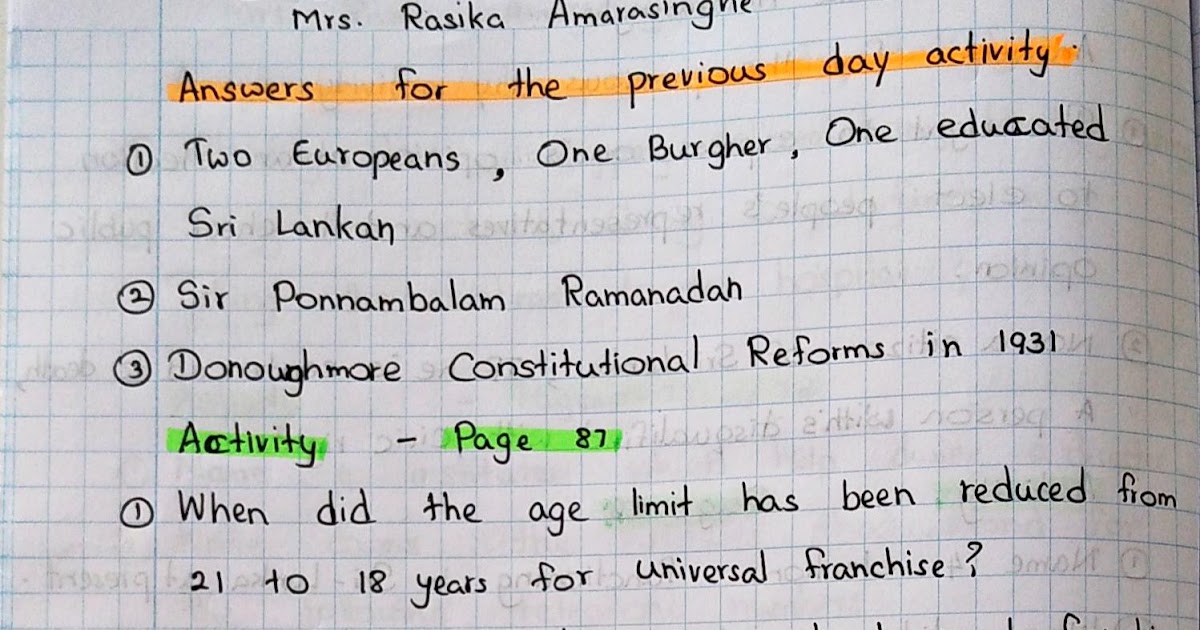 Mrs. Rasika Amarasinghe
Answers for the previous day activity.
① Two Europeans, One Burgher, One educated
Sri Lankan
② Sir Ponnambalam Ramanadan
③ Donoughmore Constitutional Reforms in 1931
Activity - Page 87
① When did the age limit has been reduced from
21 to 18 years for universal franchise?